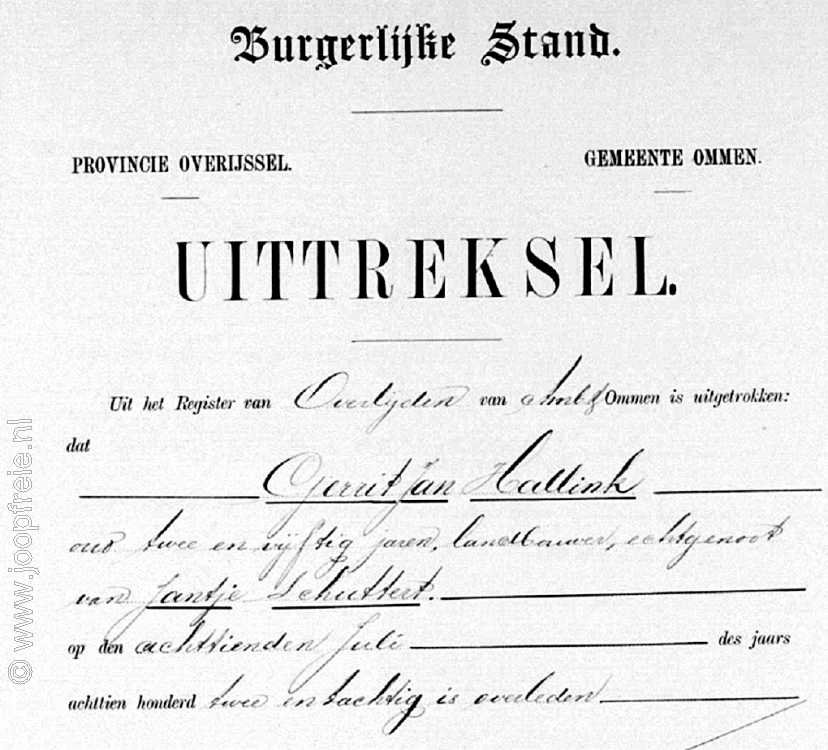 Burgerlijke Stand.
PROVINCIE OVERIJSSEL. GEMEENTE OMMEN.
UITTREKSEL.
Uit het Register van Overlijden van Ambt Ommen is uitgetrokken:
dat
Gerrit Jan Hallink
oud twee en vijftig jaren, landbouwer, echtgenoot
van Jantje Schuttert.
op den achttienden Juli des jaars
achttien honderd twee en tachtig is overleden
© www.joopfreie.nl